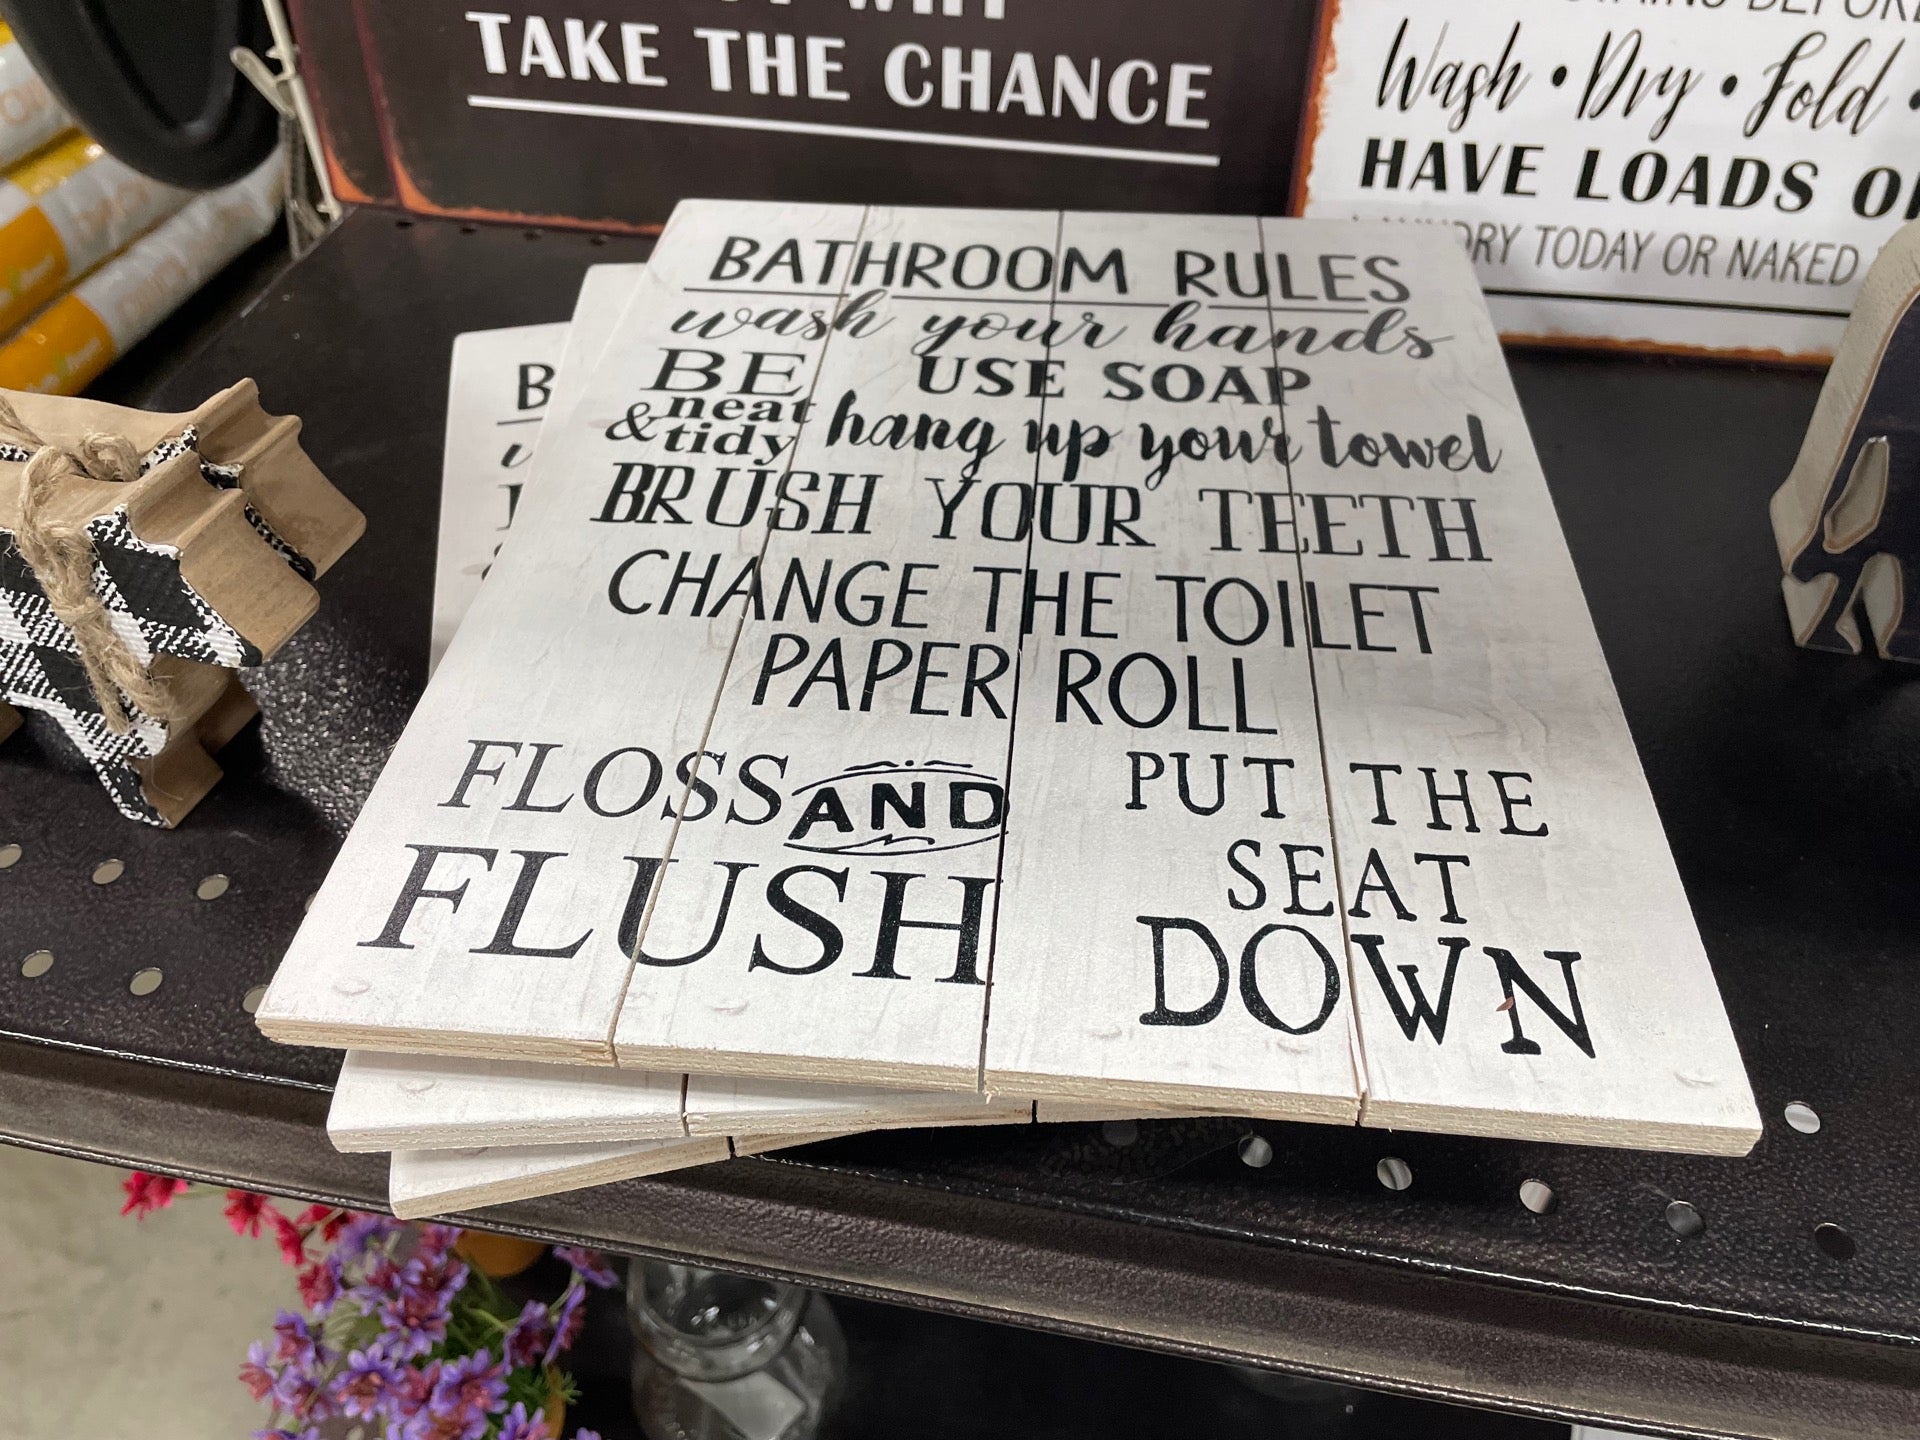 TAKE THE CHANCE
Wash • Dry • Fold •
HAVE LOADS
TODAY OR NAKED
BATHROOM RULES
wash your hands
BE USE SOAP
neat
& tidy hang up your towel
BRUSH YOUR TEETH
CHANGE THE TOILET
PAPER ROLL
FLOSS AND
FLUSH
PUT THE
SEAT
DOWN
B